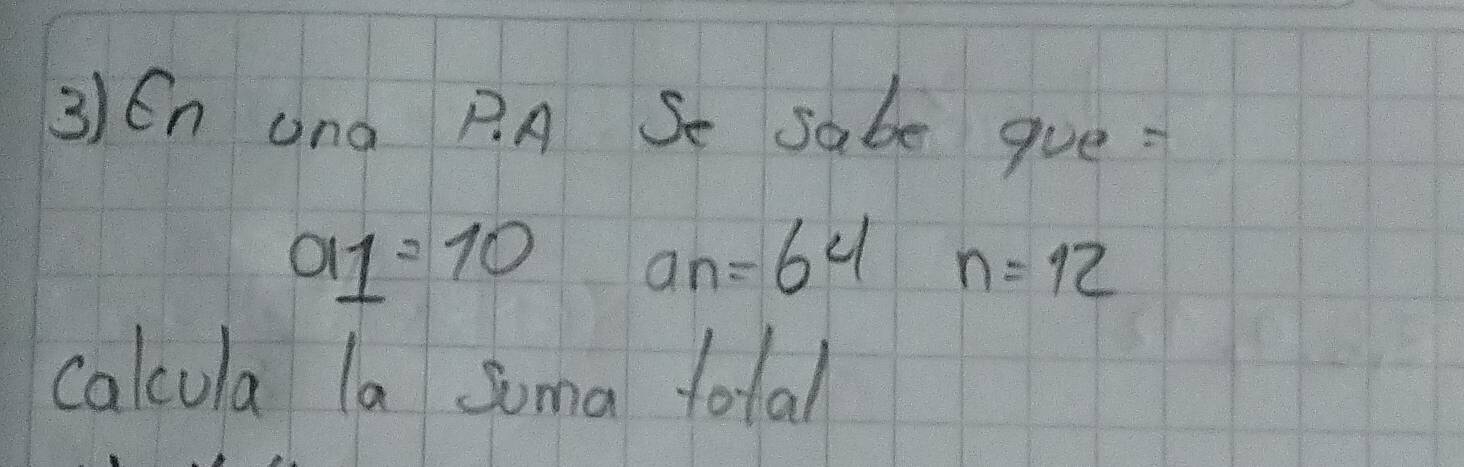 3) En una P.A Se sabe que =
a1 = 10 an = 64 n = 12
calcula la suma total